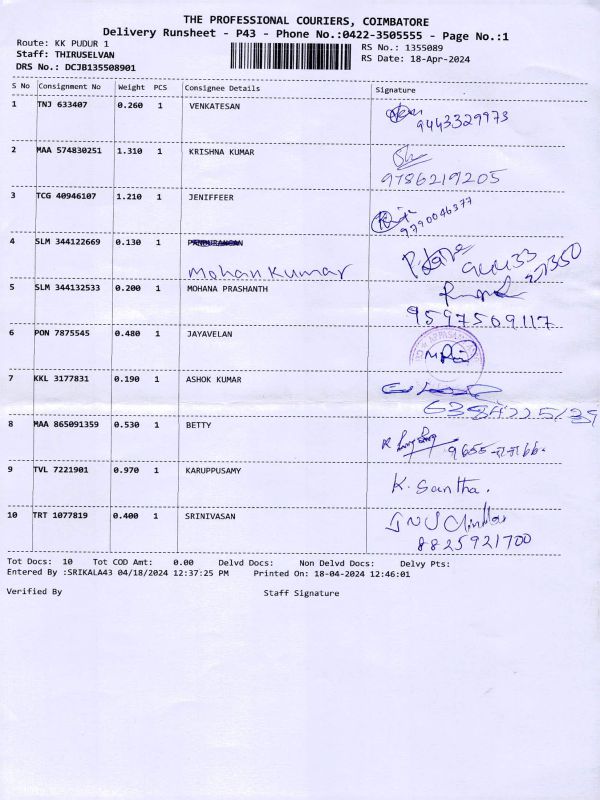 THE PROFESSIONAL COURIERS, COIMBATORE
Delivery Runsheet - P43 - Phone No.:0422-3505555 - Page No.:1
Route: KK PUDUR 1 RS No.: 1355089
Staff: THIRUSELVAN RS Date: 18-Apr-2024
DRS No.: DCJB135508901
S No Consignment No Weight PCS Consignee Details Signature
1 TNJ 633407 0.260 1 VENKATESAN
9443329973
2 MAA 574830251 1.310 1 KRISHNA KUMAR
9786219205
3 TCG 40946107 1.210 1 JENIFFEER
9790046377
4 SLM 344122669 0.130 1
Mohan Kumar
5 SLM 344132533 0.200 1 MOHANA PRASHANTH
9597569117
6 PON 7875545 0.480 1 JAYAVELAN
7 KKL 3177831 0.190 1 ASHOK KUMAR
8 MAA 865091359 0.530 1 BETTY
9 TVL 7221901 0.970 1 KARUPPUSAMY
K. Santha.
10 TRT 1077819 0.400 1 SRINIVASAN
8825921700
Tot Docs: 10 Tot COD Amt: 0.00 Delvd Docs: Non Delvd Docs: Delvy Pts:
Entered By :SRIKALA43 04/18/2024 12:37:25 PM Printed On: 18-04-2024 12:46:01
Verified By Staff Signature